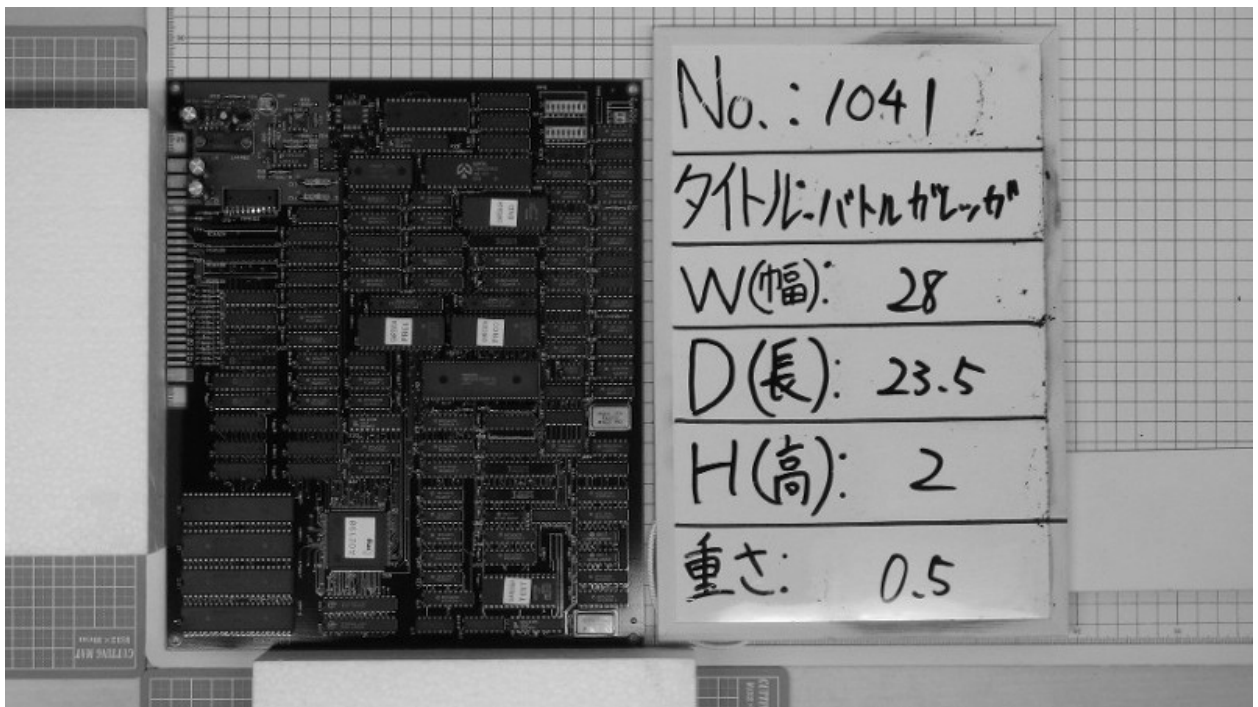 No.: 1041
タイトル:バトルガレッガ
W(幅): 28
D(長): 23.5
H(高): 2
重さ: 0.5
CUTTING MAT